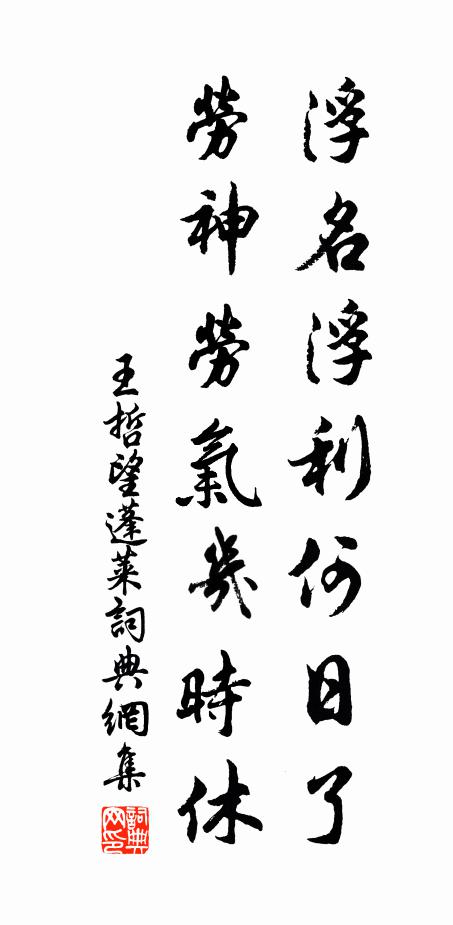 浮名浮利何日了
勞神勞氣幾時休
王哲望蓬萊詞典網集
詞典
网印